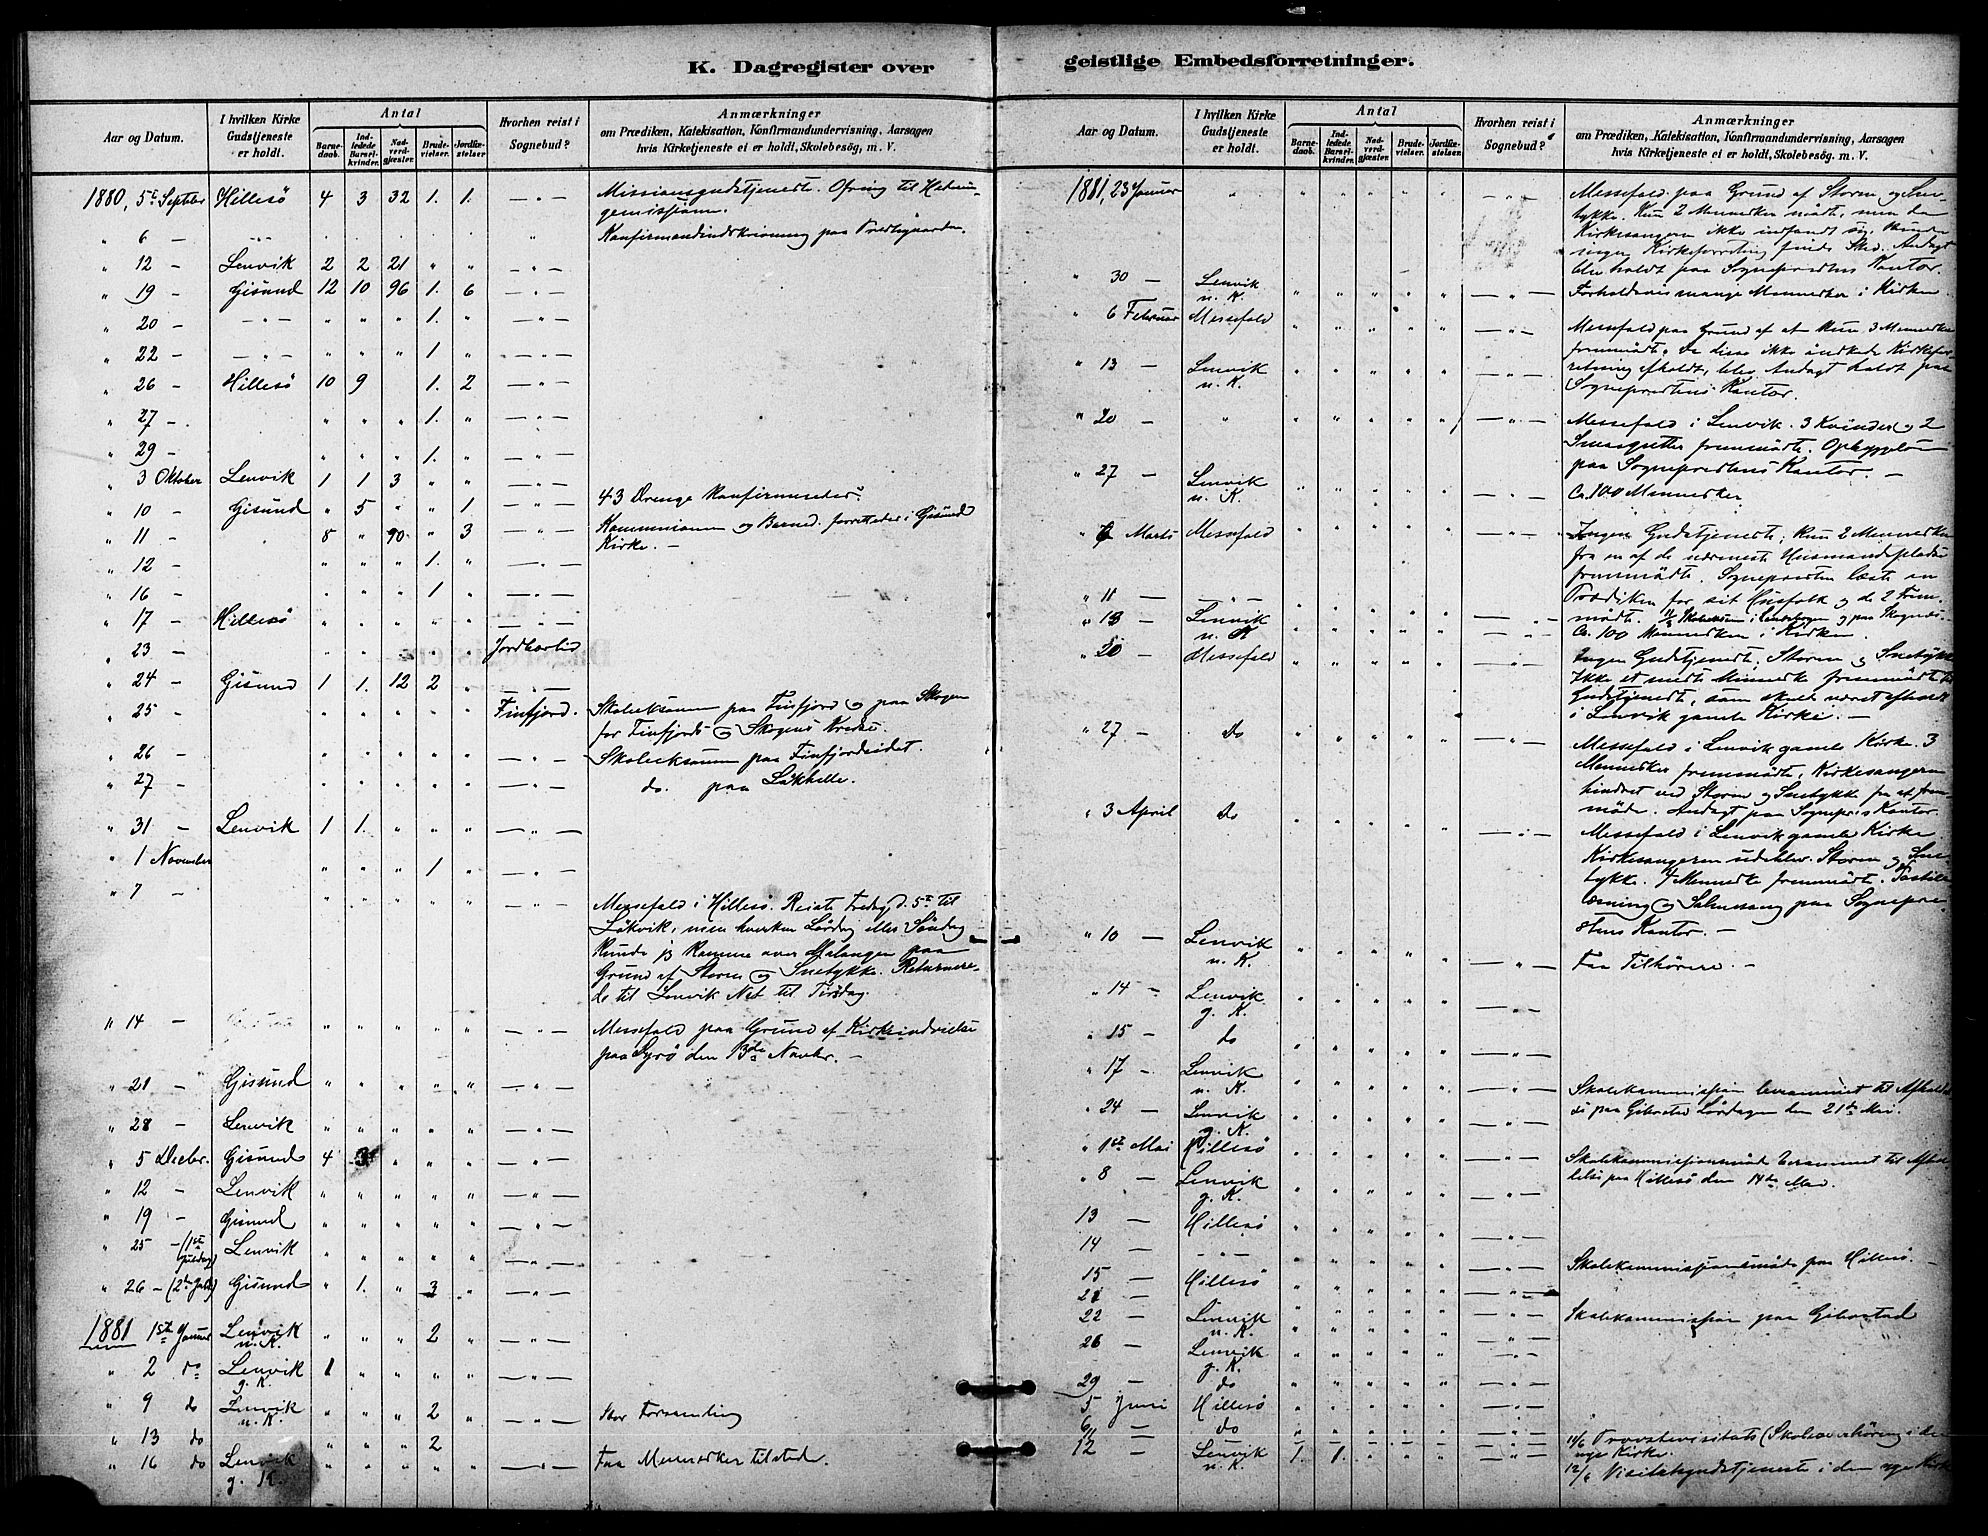 K. Dagregister over geistlige Embedsforretninger.
Aar og Datum. I hvilken Kirke Gudstjeneste er holdt. Antal Barnedaab. Indledede Barselkvinder. Nadverdgjester. Brudevielser. Jordfæstelser. Hvorhen reist i Sognebud? Anmærkninger om Prædiken, Katekisation, Konfirmandundervisning, Aarsagen hvis Kirketjeneste ei er holdt, Skolebesøg, m. V.
1880, 5te Septbr Hillesö 4 3 32 1. 1. — " — Missionsgudstjeneste. Ofring til Hedningemissionen.
" 6 — Konfirmandindskrivning paa Prestegaarden.
" 12 — Lenvik 2 2 21 " " — " —
" 19 — Gisund 12 10 96 1. 6 — " —
" 20 — — " — " " " 1. " — " —
" 22 — — " — " " " 1 " — " —
" 26 — Hillesö 10 9 1. 2 — " —
" 27 — " " " 1. " — " —
" 29 — " " " 1. " — " —
" 3 Oktober Lenvik 1 1 3 " " — " —
" 10 — Gisund " 5 " " 1 — " — 43 Drenge konfirmeredes.
" 11 — 8 " 90 " 3 — " — Kommunionen og Barned. forrettedes i Gisund
Kirke. —
" 12 — " " " 1. " — " —
" 16 — " " " 1 " — " —
" 17 — Hillesö " " " " " — " —
" 23 — " " " " "
" 24 — Gisund 1 1. 12 2 " — " —
" 25 — " " " " " Finfjord. Skoleeksamen paa Finfjord og paa Skogen
for Finfjords og Skogens Kredse.
" 26 — " " " " " — " — Skoleeksamen paa Finfjordeidet.
" 27 — " " " " " — " — do. paa Läkhelle.
" 31 — Lenvik 1 1. " " " — " —
" 1 November " " " 1 " — " —
" 7 — " " " " " — " — Messefald i Hillesö. Reiste Fredag d. 5te til
Lökvik, men hverken Lördag eller Söndag
kunde jeg komme over Malangen paa
Grund af Storm og Snetykke. Returnere-
de til Lenvik Nat til Tirsdag.
" 14 — " " " " " — " — Messefald paa Grund af Kirkeindvielse
paa den 13de Novbr. —
" 21 — Gisund " " " " " — " —
" 28 — Lenvik " " " " " — " —
" 5 Decbr. Gisund 4 3 " " " — " —
" 12 — Lenvik " " " " " — " —
" 19 — Gisund " " " " " — " —
" 25 — (1ste Juledag) Lenvik " " " " " — " —
" 26 — (2den Juled) Gisund " 1. " 3 " — " —
1881 1ste Januar Lenvik n. K. " " " 2 " — " —
" 2 do Lenvik g. K. 1 " " " " — " —
" 9 do Lenvik n. K. " " " 2 " — " — Stor Forsamling
" 13 do " " " 2
" 16 do Lenvik g. K. " " " " " — " — Faa Mennesker tilstede.
Aar og Datum. I hvilken Kirke Gudstjeneste er holdt. Antal Barnedaab. Indledede Barselkvinder. Nadverdgjester. Brudevielser. Jordfæstelser. Hvorhen reist i Sognebud? Anmærkninger om Prædiken, Katekisation, Konfirmandundervisning, Aarsagen hvis Kirketjeneste ei er holdt, Skolebesøg, m. V.
1881, 23 Januar " " " " " " — " — Messefald paa Grund af Storm og Sne-
tykke. Kun 2 Mennesker mödte, men da
Kirkesangeren ikke indfandt sig, kunde
ingen Kirkeforretning finde Sted. Andagt
blev holdt paa Sogneprestens Kontor.
" 30 — Lenvik n. K. " " " " " — " — Forholdsvis mange Mennesker i Kirken.
" 6 Februar Messefald " " " " " — " — Messefald paa Grund af at kun 3 Mennesker
fremmödte. Da disse ikke önskede Kirkefor-
retning afholdt, blev Andagt holdt paa
Sogneprestens Kontor.
" 13 — Lenvik n. K. " " " " " — " —
" 20 — " " " " " " — " — Messefald i Lenvik. 3 Kvinder og 2
Smaagutter fremmödte. Opbyggelse
paa Sogneprestens Kontor. —
" 27 — Lenvik n. K. " " " " " — " — Ca. 100 Mennesker
" 6 Marts Messefald " " " " " — " — Ingen Gudstjeneste; kun 2 Mennesker
fra en af de nærmeste Husmandspladse
fremmödte. Sognepresten læste en
Prædiken for sit Husfolk og de 2 Frem-
mödte.
" 11 — — " —
" 13 — Lenvik n. K. " " " " " — " — Ca. 100 Mennesker i Kirken.
" 20 — Messefald " " " " " — " — Ingen Gudstjeneste. Storm og Snetykke
Ikke et eneste Menneske fremmödte til
Gudstjeneste, som skulde været afholdt
i Lenvik gamle Kirke. —
" 27 — do " " " " " — " — Messefald i Lenvik gamle Kirke. 3
Mennesker fremmödte. Kirkesangeren
hindret ved Storm og Snetykke fra at frem-
möde. Andagt paa Sognepr.s Kontor.
" 3 April do " " " " " — " — Messefald i Lenvik gamle Kirke
Kirkesangeren udeblev. Storm og Sne-
tykke. 4 Menneske fremmödte. Postille-
læsning og Salmesang paa Sognepre-
stens Kontor. —
" 10 — Lenvik n. K. " " " " " — " — Faa Tilhörere. —
" 14 — Lenvik g. K. " " " " " — " —
" 15 — do " " " " " — " —
" 17 — Lenvik n. K. " " " " " — " — Skolekommission berammet til Afholdel-
se paa Gibostad Lördagen den 21de Mai.
" 24 — Lenvik g. K. " " " " " — " —
" 1ste Mai Hillesö " " " " " — " — Skolekommissionsmöde berammet til Afhol-
delse paa Hillesö den 14de Mai.
" 8 — Lenvik g. K. " " " " " — " —
13 — Hillesö " " " " " — " —
14 — — " — " " " " " — " — Skolekommissionsmöde paa Hillesö. —
15 — Hillesö " " " " " — " —
21 — " " " " " — " — Skolekommission paa Gibostad
22 — Lenvik n. K. " " " " " — " —
26 — Lenvik g. K. " " " " " — " —
29 — do " " " " " — " —
5 Juni Hillesö " " " " " — " —
6 — do " " " " " — " —
11 — 11/6 Provstevisitats (Skoleoverhöring) i den
nye Kirke.
12 — Lenvik n. K. 1. 1. " " " — " — 12/6 Visitatsgudstjeneste i den nye Kirke